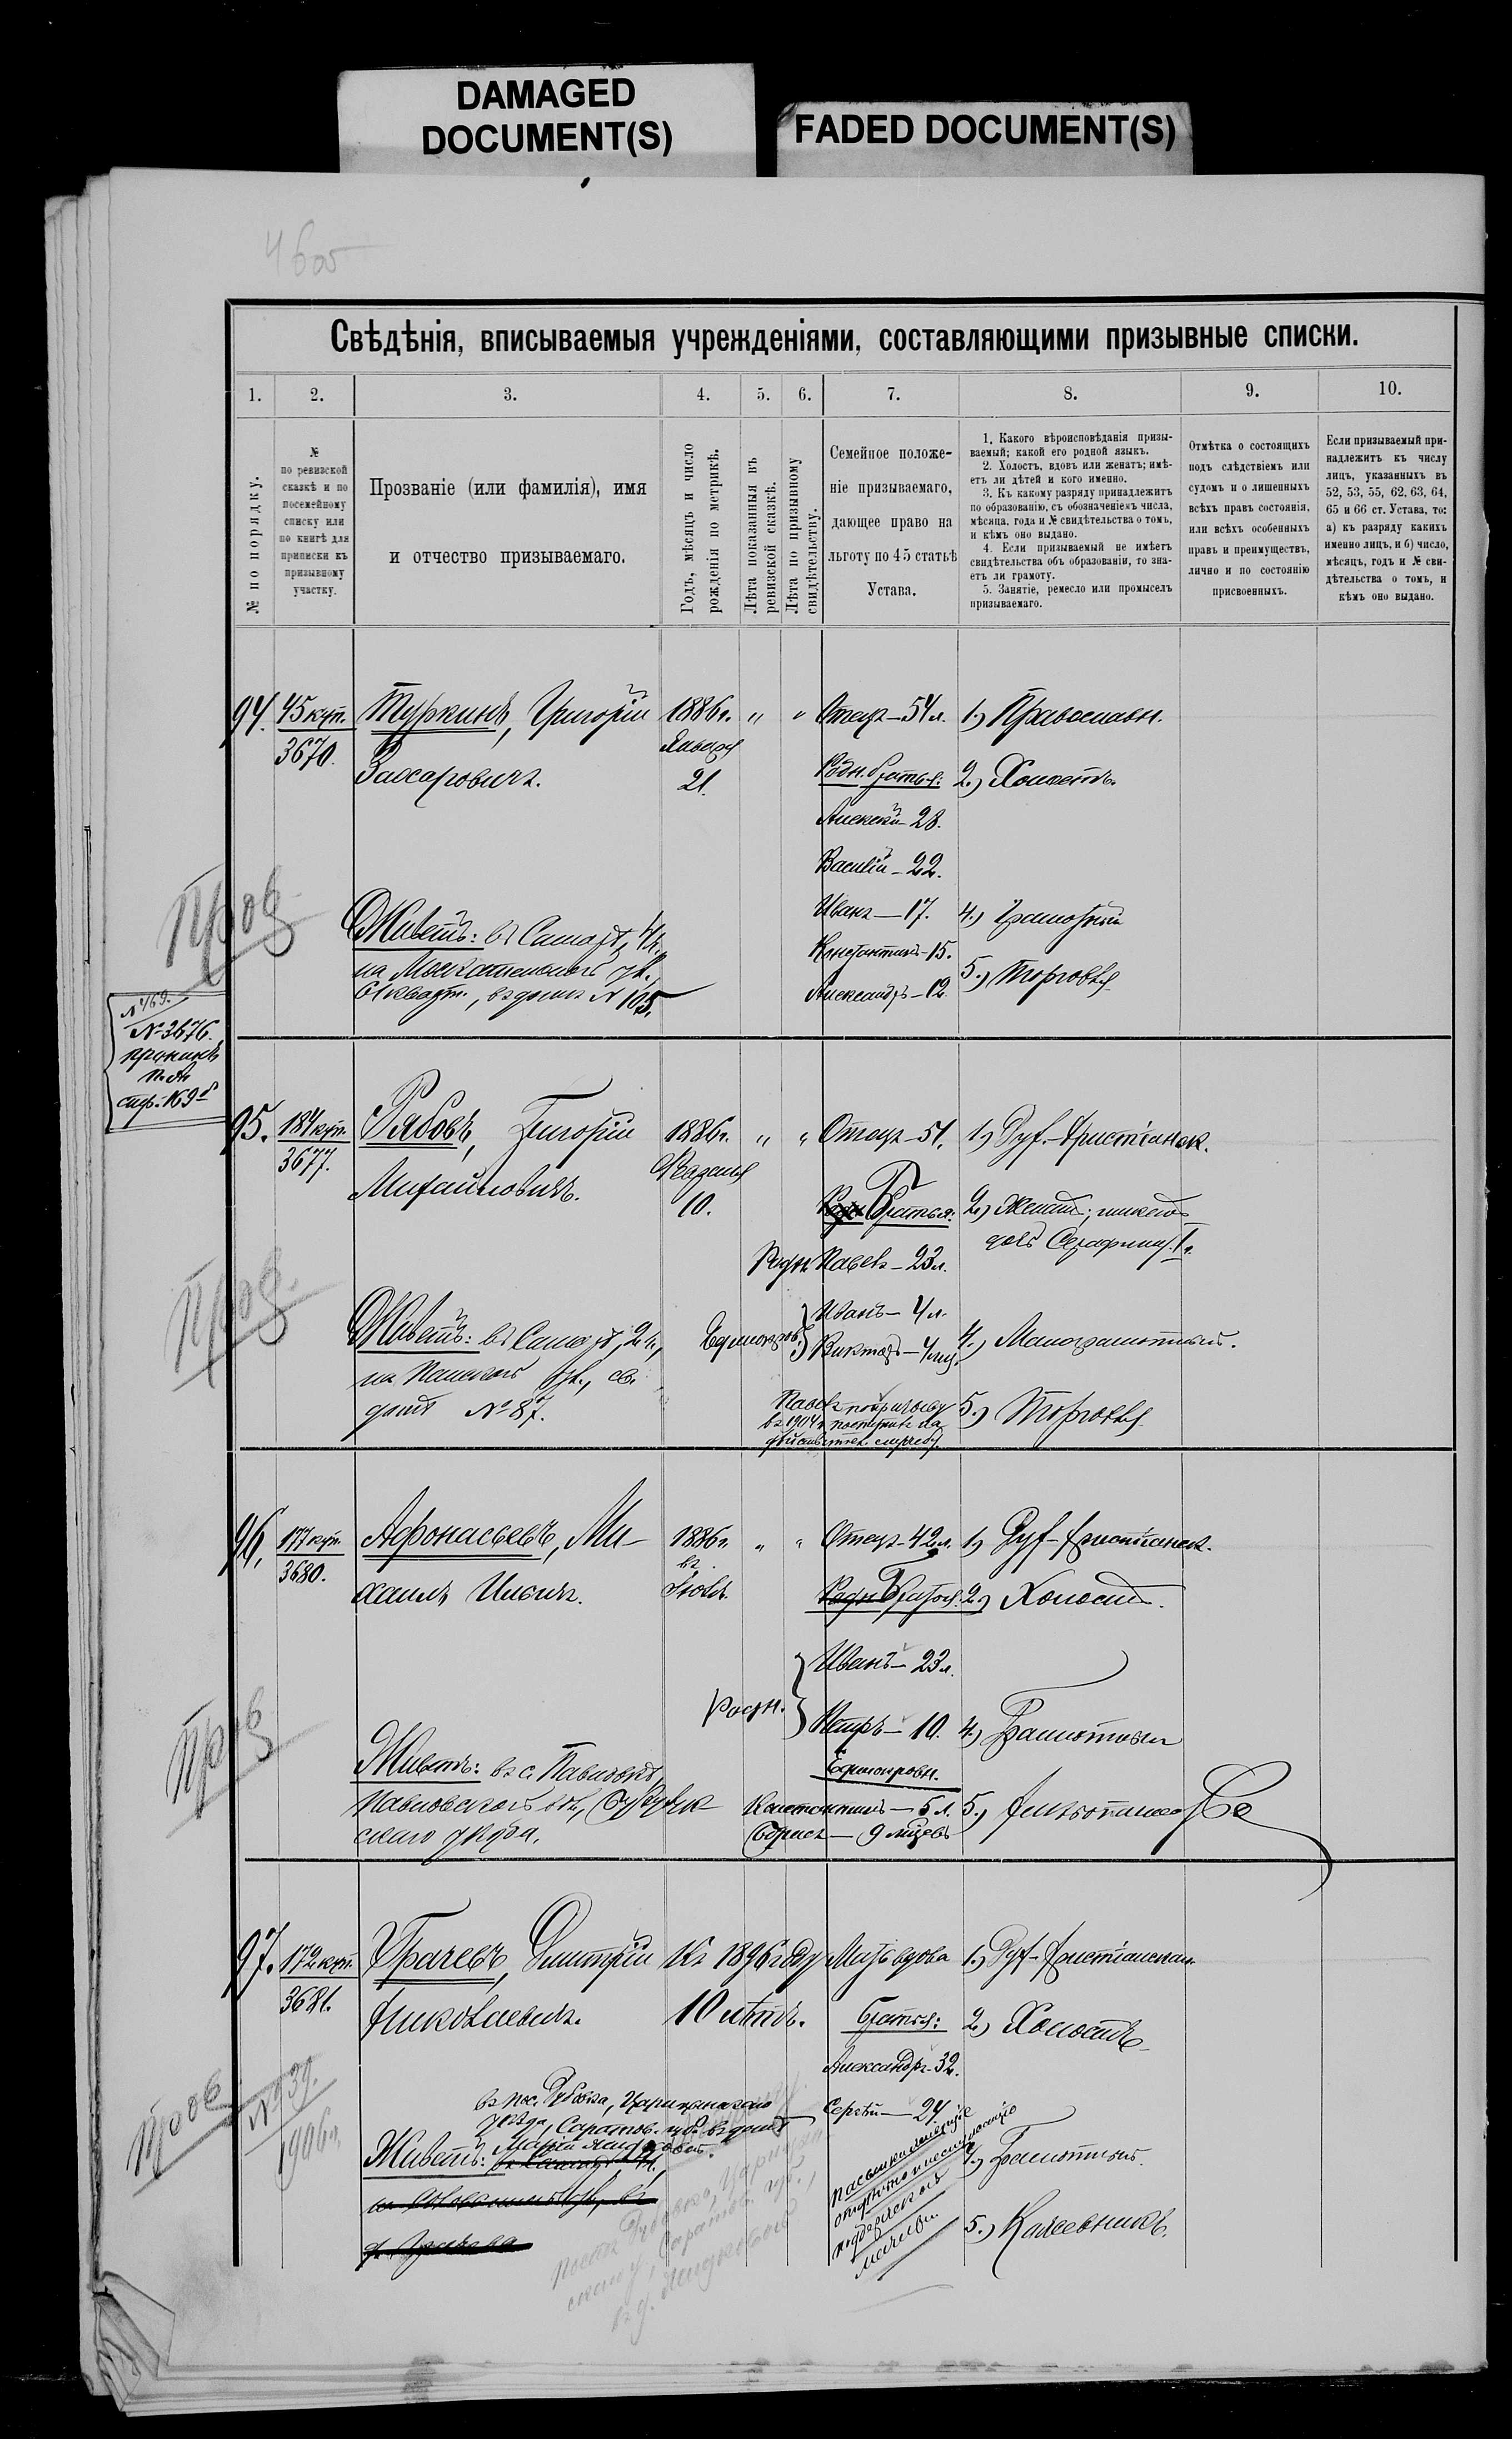 DAMAGED
DOCUMENT(S)
FADED DOCUMENT(S)
4605
Свѣдѣнія, вписываемыя учрежденіями, составляющими призывные списки.
1. 2. 3. 4. 5. 6. 7. 8. 9. 10.
№ по порядку.
№
по ревизской
сказкѣ и по
посемейному
списку или
по книгѣ для
приписки къ
призывному
участку.
Прозваніе (или фамилія), имя
и отчество призываемаго.
Годъ, мѣсяцъ и число
рожденія по метрикѣ.
Лѣта показанныя въ
ревизской сказкѣ.
Лѣта по призывному
свидѣтельству.
Семейное положе-
ніе призываемаго,
дающее право на
льготу по 45 статьѣ
Устава.
1. Какого вѣроисповѣданія призы-
ваемый; какой его родной языкъ.
2. Холостъ, вдовъ или женатъ; имѣ-
етъ ли дѣтей и кого именно.
3. Къ какому разряду принадлежитъ
по образованію, съ обозначеніемъ числа,
мѣсяца, года и № свидѣтельства о томъ,
и кѣмъ оно выдано.
4. Если призываемый не имѣетъ
свидѣтельства объ образованіи, то зна-
етъ ли грамоту.
5. Занятіе, ремесло или промыселъ
призываемаго.
Отмѣтка о состоящихъ
подъ слѣдствіемъ или
судомъ и о лишенныхъ
всѣхъ правъ состоянія,
или всѣхъ особенныхъ
правъ и преимуществъ,
лично и по состоянію
присвоенныхъ.
Если призываемый при-
надлежитъ къ числу
лицъ, указанныхъ въ
52, 53, 55, 62, 63, 64,
65 и 66 ст. Устава, то:
а) къ разряду какихъ
именно лицъ, и б) число,
мѣсяцъ, годъ и № сви-
дѣтельства о томъ, и
кѣмъ оно выдано.
94. 45 куп. Туркинъ, Григорій 1886 г. " " Отецъ-54 л. 1.) Православн.
3670. Захаровичъ. Января 21. Родн. братья: 2.) Холостъ.
Алексѣй-28.
Василій-22.
Иванъ-17. 4.) Грамотный
Константинъ-15. 5.) Торговля
Александръ-12.
Пров.
Живетъ: въ Самарѣ, 4 ч.
на Москательной ул.,
61 кварт., въ домѣ № 105.
№ 3676.
95. 184 куп. Рябовъ, Григорій 1886 г. " " Отецъ-51. 1.)
3677. Михайловичъ. 10. Братья: 2.) Женатъ;
дочь Серафима 1 г.
Родн. Павелъ-23 л.
Пров.
Живетъ: въ Самарѣ, 2 ч., Единокров. Иванъ-4 л.
Викторъ-4 мѣс. 4.) Малограмотный.
на Панской ул., въ
домѣ № 87.
Павелъ по призыву
въ 1904 г. поступилъ на
дѣйствител. службу. 5.) Торговля
96. 177 куп. Афонасьевъ, Ми- 1886 г. " " Отецъ-42 л. 1.)
3680. хаилъ Ильичъ. въ Іюлѣ. Родн. Братья. 2.) Холостъ.
Родн. Иванъ-23 л.
Петръ-10. 4.) Грамотный
Пров
Единокровн.
Живетъ: въ с. Павловкѣ,
Павловской вол., Бузулук-
скаго уѣзда.
Константинъ-5 л. 5.)
Борисъ-9 мѣсяцевъ
97. 172 куп. Грачевъ, Дмитрій Къ 1896 году Мать вдова 1.)
3681. Николаевичъ. 10 лѣтъ. Братья: 2.) Холостъ
Александръ-32.
Сергѣй-24.
Пров № 39. 1906 г.
въ пос. Дубовка, Царицынскаго
уѣзда, Саратов. губ. въ домѣ
Живетъ:
4.) Грамотный.
5.)